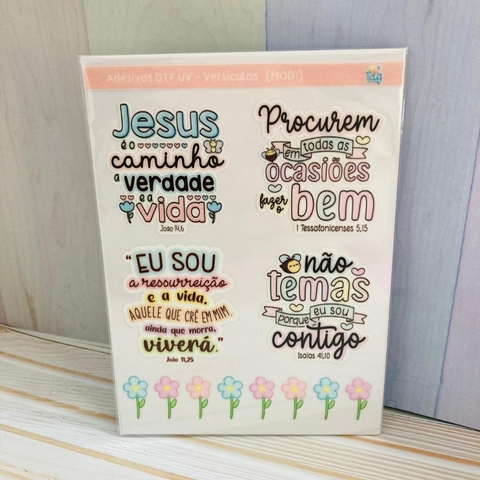 Adesivos DTF UV - Versículos (MOD1)
Jesus
é o
caminho
a verdade
e a
vida
João 14,6
Procurem
em todas as
ocasiões
fazer o bem
1 Tessalonicenses 5,15
"EU SOU
a ressurreição
e a vida.
AQUELE QUE CRÊ EM MIM,
ainda que morra,
viverá."
João 11,25
não
temas
porque eu sou
contigo
Isaías 41,10